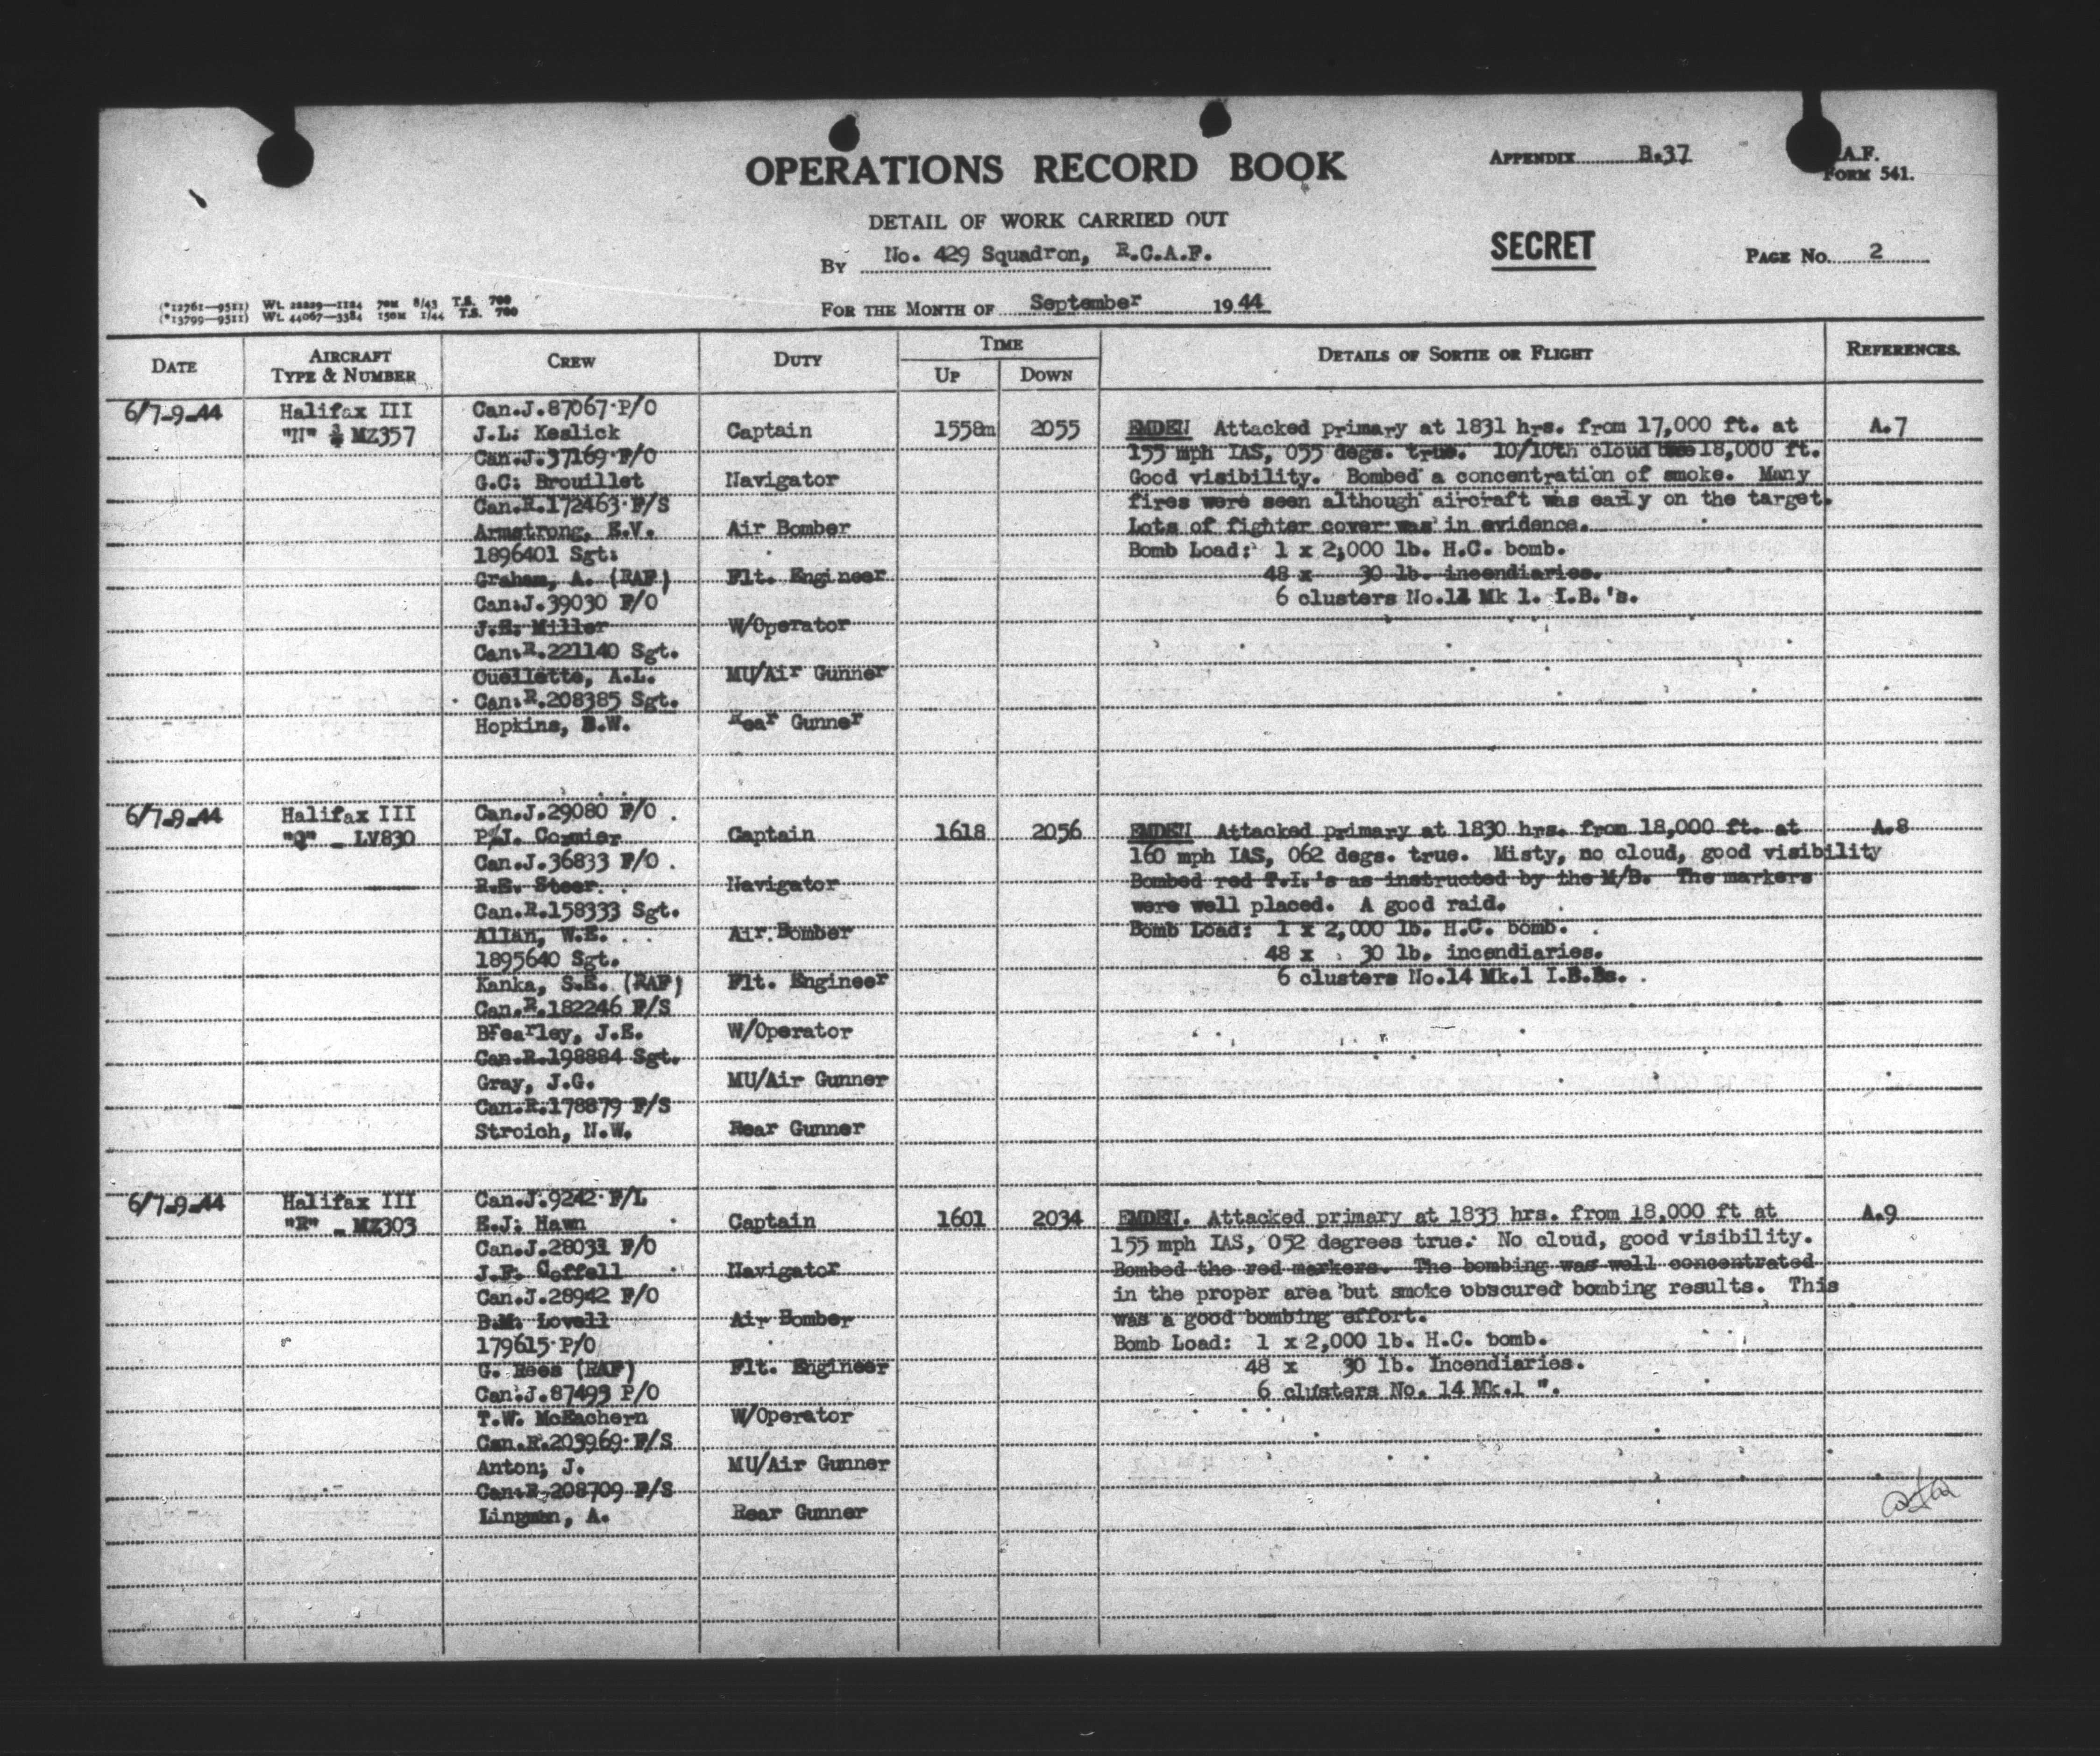 OPERATIONS RECORD BOOK
APPENDIX B.37
R.A.F.
FORM 541.
DETAIL OF WORK CARRIED OUT
By No. 429 Squadron, R.C.A.F.
SECRET
PAGE No. 2
(*12761—9511) Wt. 22829—1124 70M 8/43 T.S. 700
(*13799—9511) Wt. 44067—3384 150M 1/44 T.S. 700
FOR THE MONTH OF September 1944
DATE
AIRCRAFT TYPE & NUMBER
CREW
DUTY
TIME
UP
DOWN
DETAILS OF SORTIE OR FLIGHT
REFERENCES.
6/7-9-44 Halifax III Can.J.87067 P/O
"N" MZ357 J.L. Keslick Captain 1558m 2055 EMDEN Attacked primary at 1831 hrs. from 17,000 ft. at A.7
Can.J.37169 F/O 155 mph IAS, 055 degs. true. 10/10th cloud 18,000 ft.
G.C. Brouillet Navigator Good visibility. Bombed a concentration of smoke. Many
Can.R.172463 F/S fires were seen although aircraft was early on the target.
Armstrong, E.V. Air Bomber Lots of fighter cover was in evidence.
1896401 Sgt. Bomb Load: 1 x 2,000 lb. H.C. bomb.
Graham, A. (RAF) Flt. Engineer 48 x 30 lb. incendiaries.
Can.J.39030 P/O 6 clusters No.14 Mk 1. I.B.'s.
J.E. Miller W/Operator
Can.R.221140 Sgt.
Ouellette, A.L. MU/Air Gunner
Can.R.208385 Sgt.
Hopkins, B.W. Rear Gunner
6/7-9-44 Halifax III Can.J.29080 F/O
"Q" - LV830 P.J. Cormier Captain 1618 2056 EMDEN Attacked primary at 1830 hrs. from 18,000 ft. at A.8
Can.J.36833 F/O 160 mph IAS, 062 degs. true. Misty, no cloud, good visibility
R.E. Steer Navigator Bombed red T.I.'s as instructed by the M/B. The markers
Can.R.158333 Sgt. were well placed. A good raid.
Allan, W.E. Air Bomber Bomb Load: 1 x 2,000 lb. H.C. bomb.
1895640 Sgt. 48 x 30 lb. incendiaries.
Kanka, S.E. (RAF) Flt. Engineer 6 clusters No.14 Mk.1 I.B.Bs.
Can.R.182246 F/S
Brearley, J.E. W/Operator
Can.R.198884 Sgt.
Gray, J.G. MU/Air Gunner
Can.R.178879 F/S
Stroich, N.W. Rear Gunner
6/7-9-44 Halifax III Can.J.9242 F/L
"R" - MZ303 E.J. Hawn Captain 1601 2034 EMDEN. Attacked primary at 1833 hrs. from 18,000 ft at A.9
Can.J.28031 F/O 155 mph IAS, 052 degrees true. No cloud, good visibility.
J.F. Goffell Navigator Bombed the red markers. The bombing was well concentrated
Can.J.28942 F/O in the proper area but smoke obscured bombing results. This
B.M. Lovell Air Bomber was a good bombing effort.
179615 P/O Bomb Load: 1 x 2,000 lb. H.C. bomb.
G. Rees (RAF) Flt. Engineer 48 x 30 lb. Incendiaries.
Can.J.87493 P/O 6 clusters No. 14 Mk.1 ".
T.W. McEachern W/Operator
Can.R.203969 F/S
Anton, J. MU/Air Gunner
Can.R.208709 F/S
Lingman, A. Rear Gunner